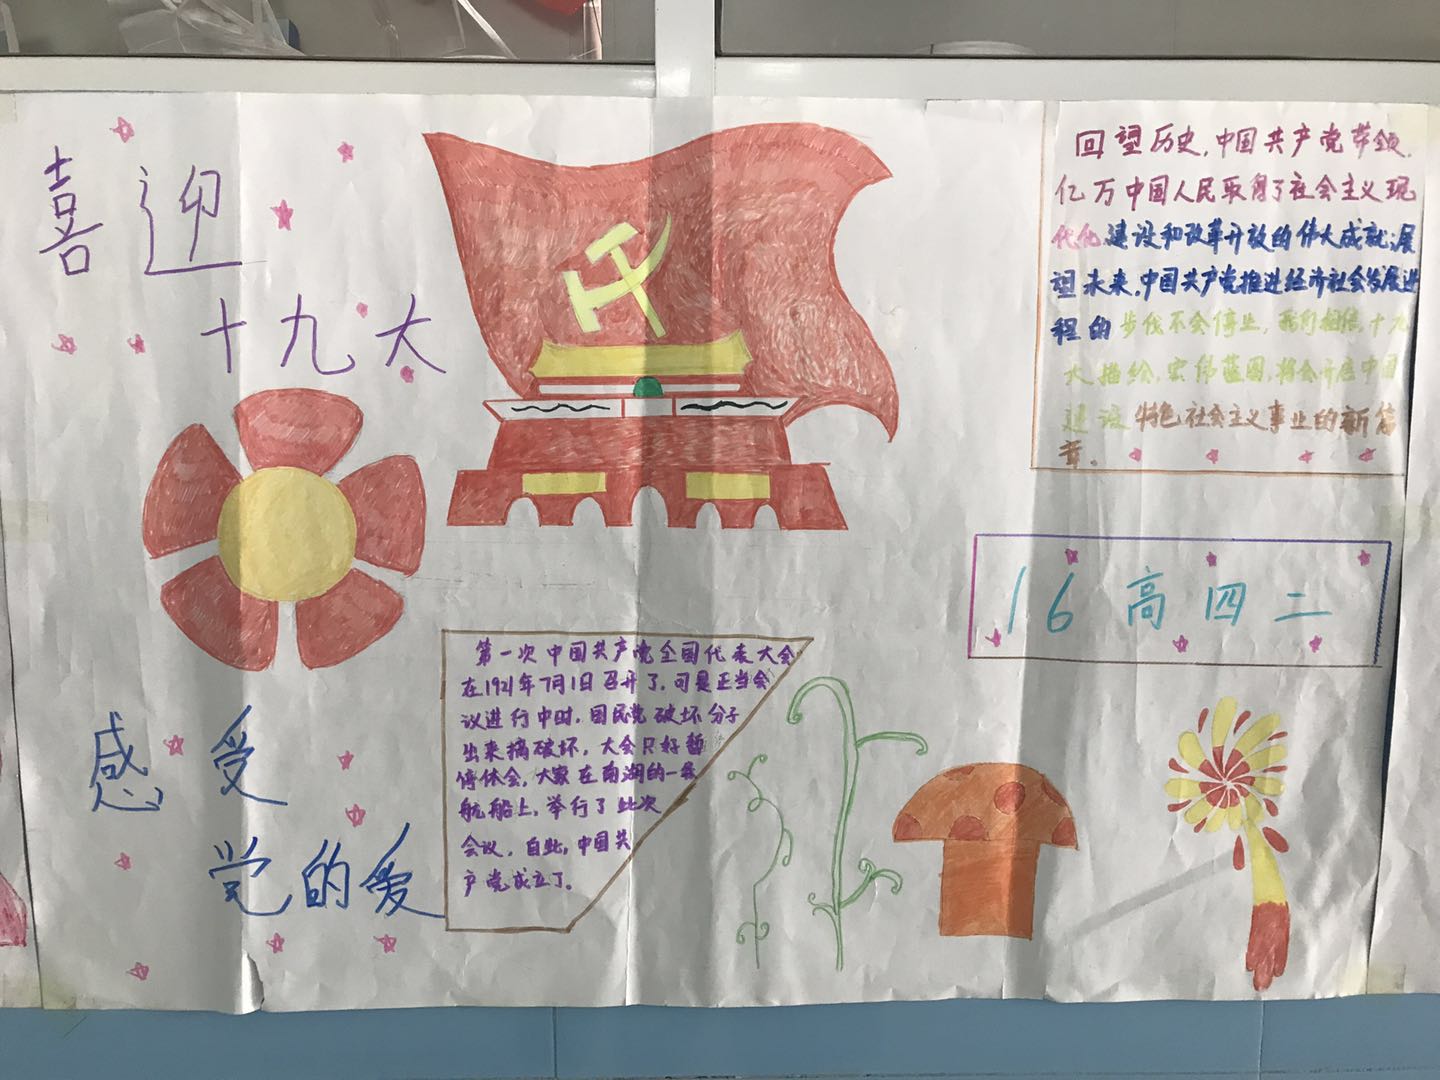 喜迎
十九大
回望历史，中国共产党带领，
亿万中国人民取得了社会主义现
代化建设和改革开放的伟大成就；展
望未来，中国共产党推进经济社会发展进
程的步伐不会停止，我们相信，十九
大描绘，宏伟蓝图，将会开启中国
建设特色社会主义事业的新篇
章。
16高四二
第一次中国共产党全国代表大会
在1921年7月1日召开了，可是正当会
议进行中时，国民党破坏分子
出来搞破坏，大会只好暂
停休会，大家在南湖的一条
航船上，举行了此次
会议，自此，中国共
产党成立了。
感受
党的爱